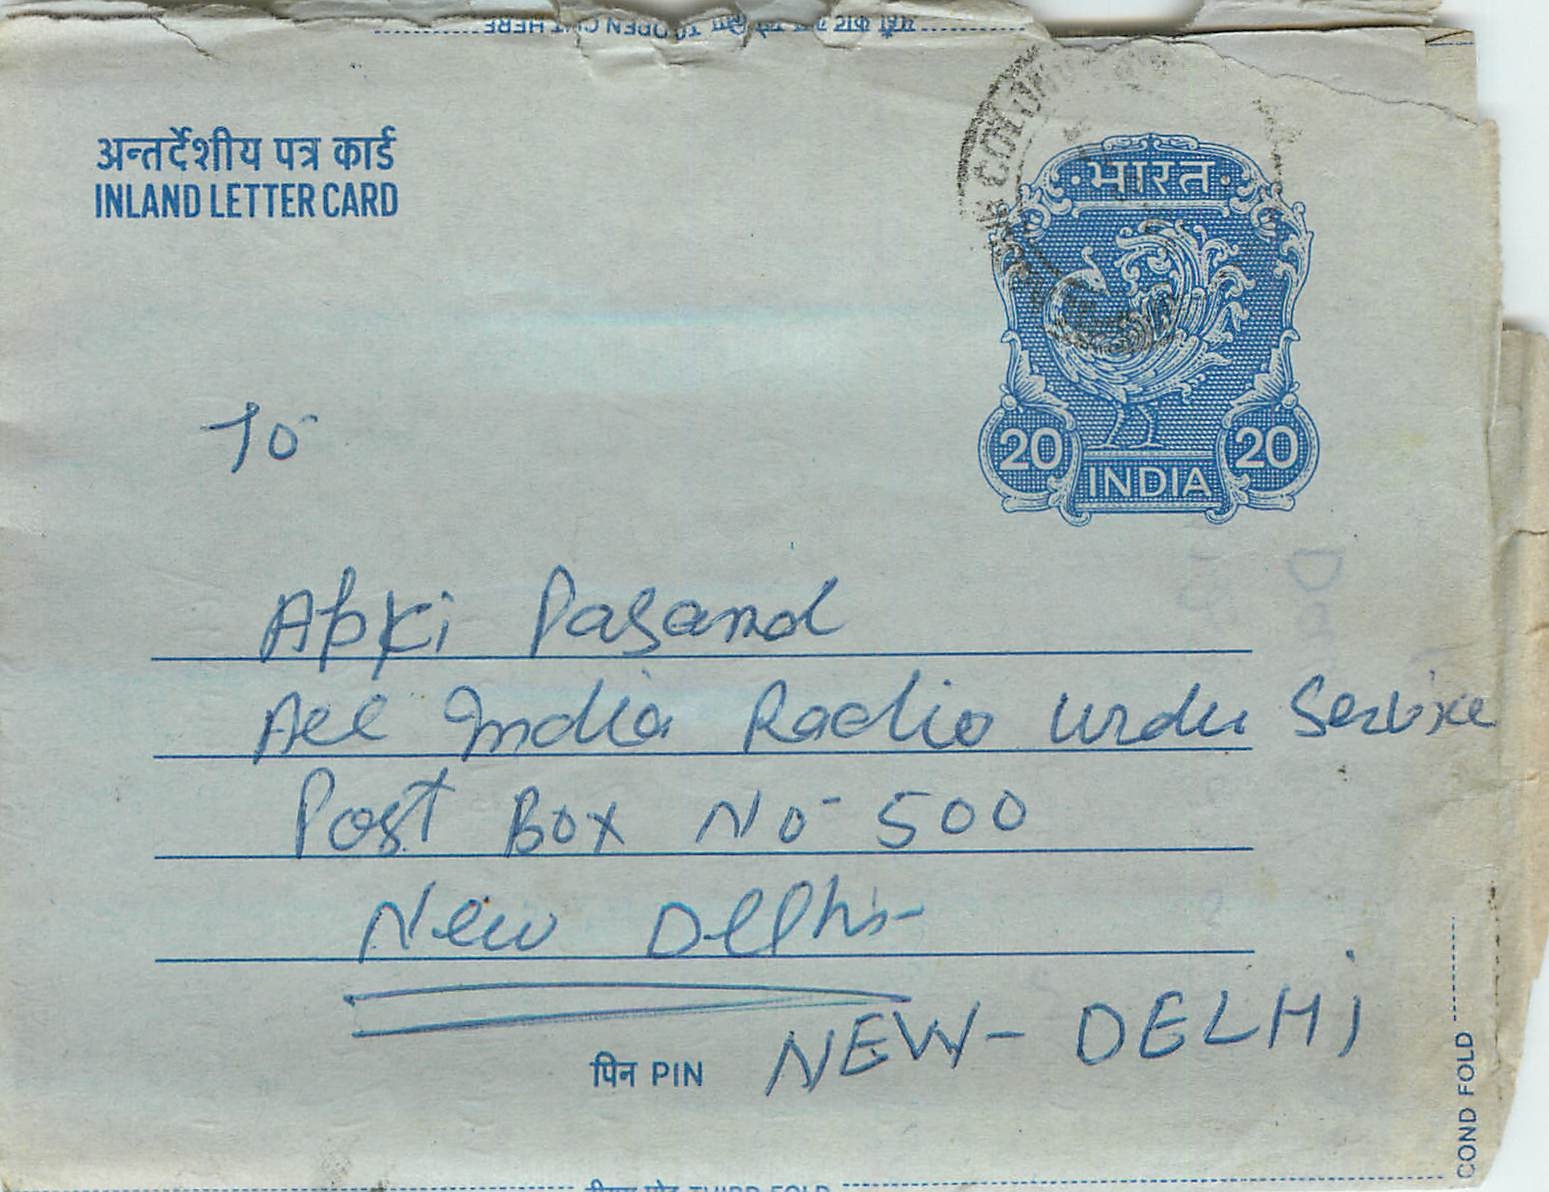 यहाँ काट कर खोलिए TO OPEN CUT HERE
अन्तर्देशीय पत्र कार्ड
INLAND LETTER CARD
भारत
20
20
INDIA
To
Apki Pasand
All India Radio Urdu Service
Post Box No 500
New Delhi
NEW-DELHi
पिन PIN
COND FOLD
THIRD FOLD